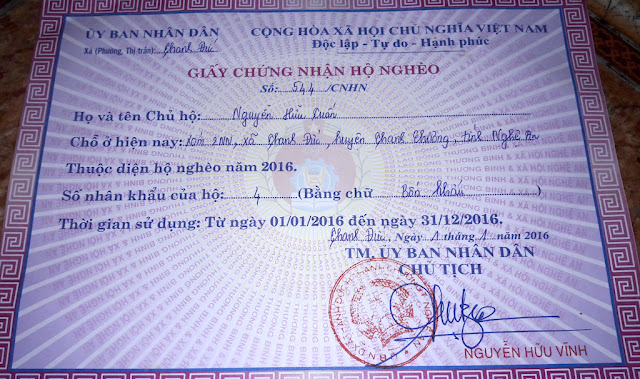 ỦY BAN NHÂN DÂN
Xã (Phường, Thị trấn): Thanh Đức
CỘNG HÒA XÃ HỘI CHỦ NGHĨA VIỆT NAM
Độc lập - Tự do - Hạnh phúc
GIẤY CHỨNG NHẬN HỘ NGHÈO
Số: 544 /CNHN
Họ và tên Chủ hộ: Nguyễn Hữu
Chỗ ở hiện nay: Xóm 2NN, xã Thanh Đức, huyện Thanh Chương, tỉnh Nghệ An
Thuộc diện hộ nghèo năm 2016.
Số nhân khẩu của hộ: 4 (Bằng chữ Bốn khẩu)
Thời gian sử dụng: Từ ngày 01/01/2016 đến ngày 31/12/2016.
Thanh Đức, Ngày 1 tháng 1 năm 2016
TM. ỦY BAN NHÂN DÂN
CHỦ TỊCH
NGUYỄN HỮU VĨNH